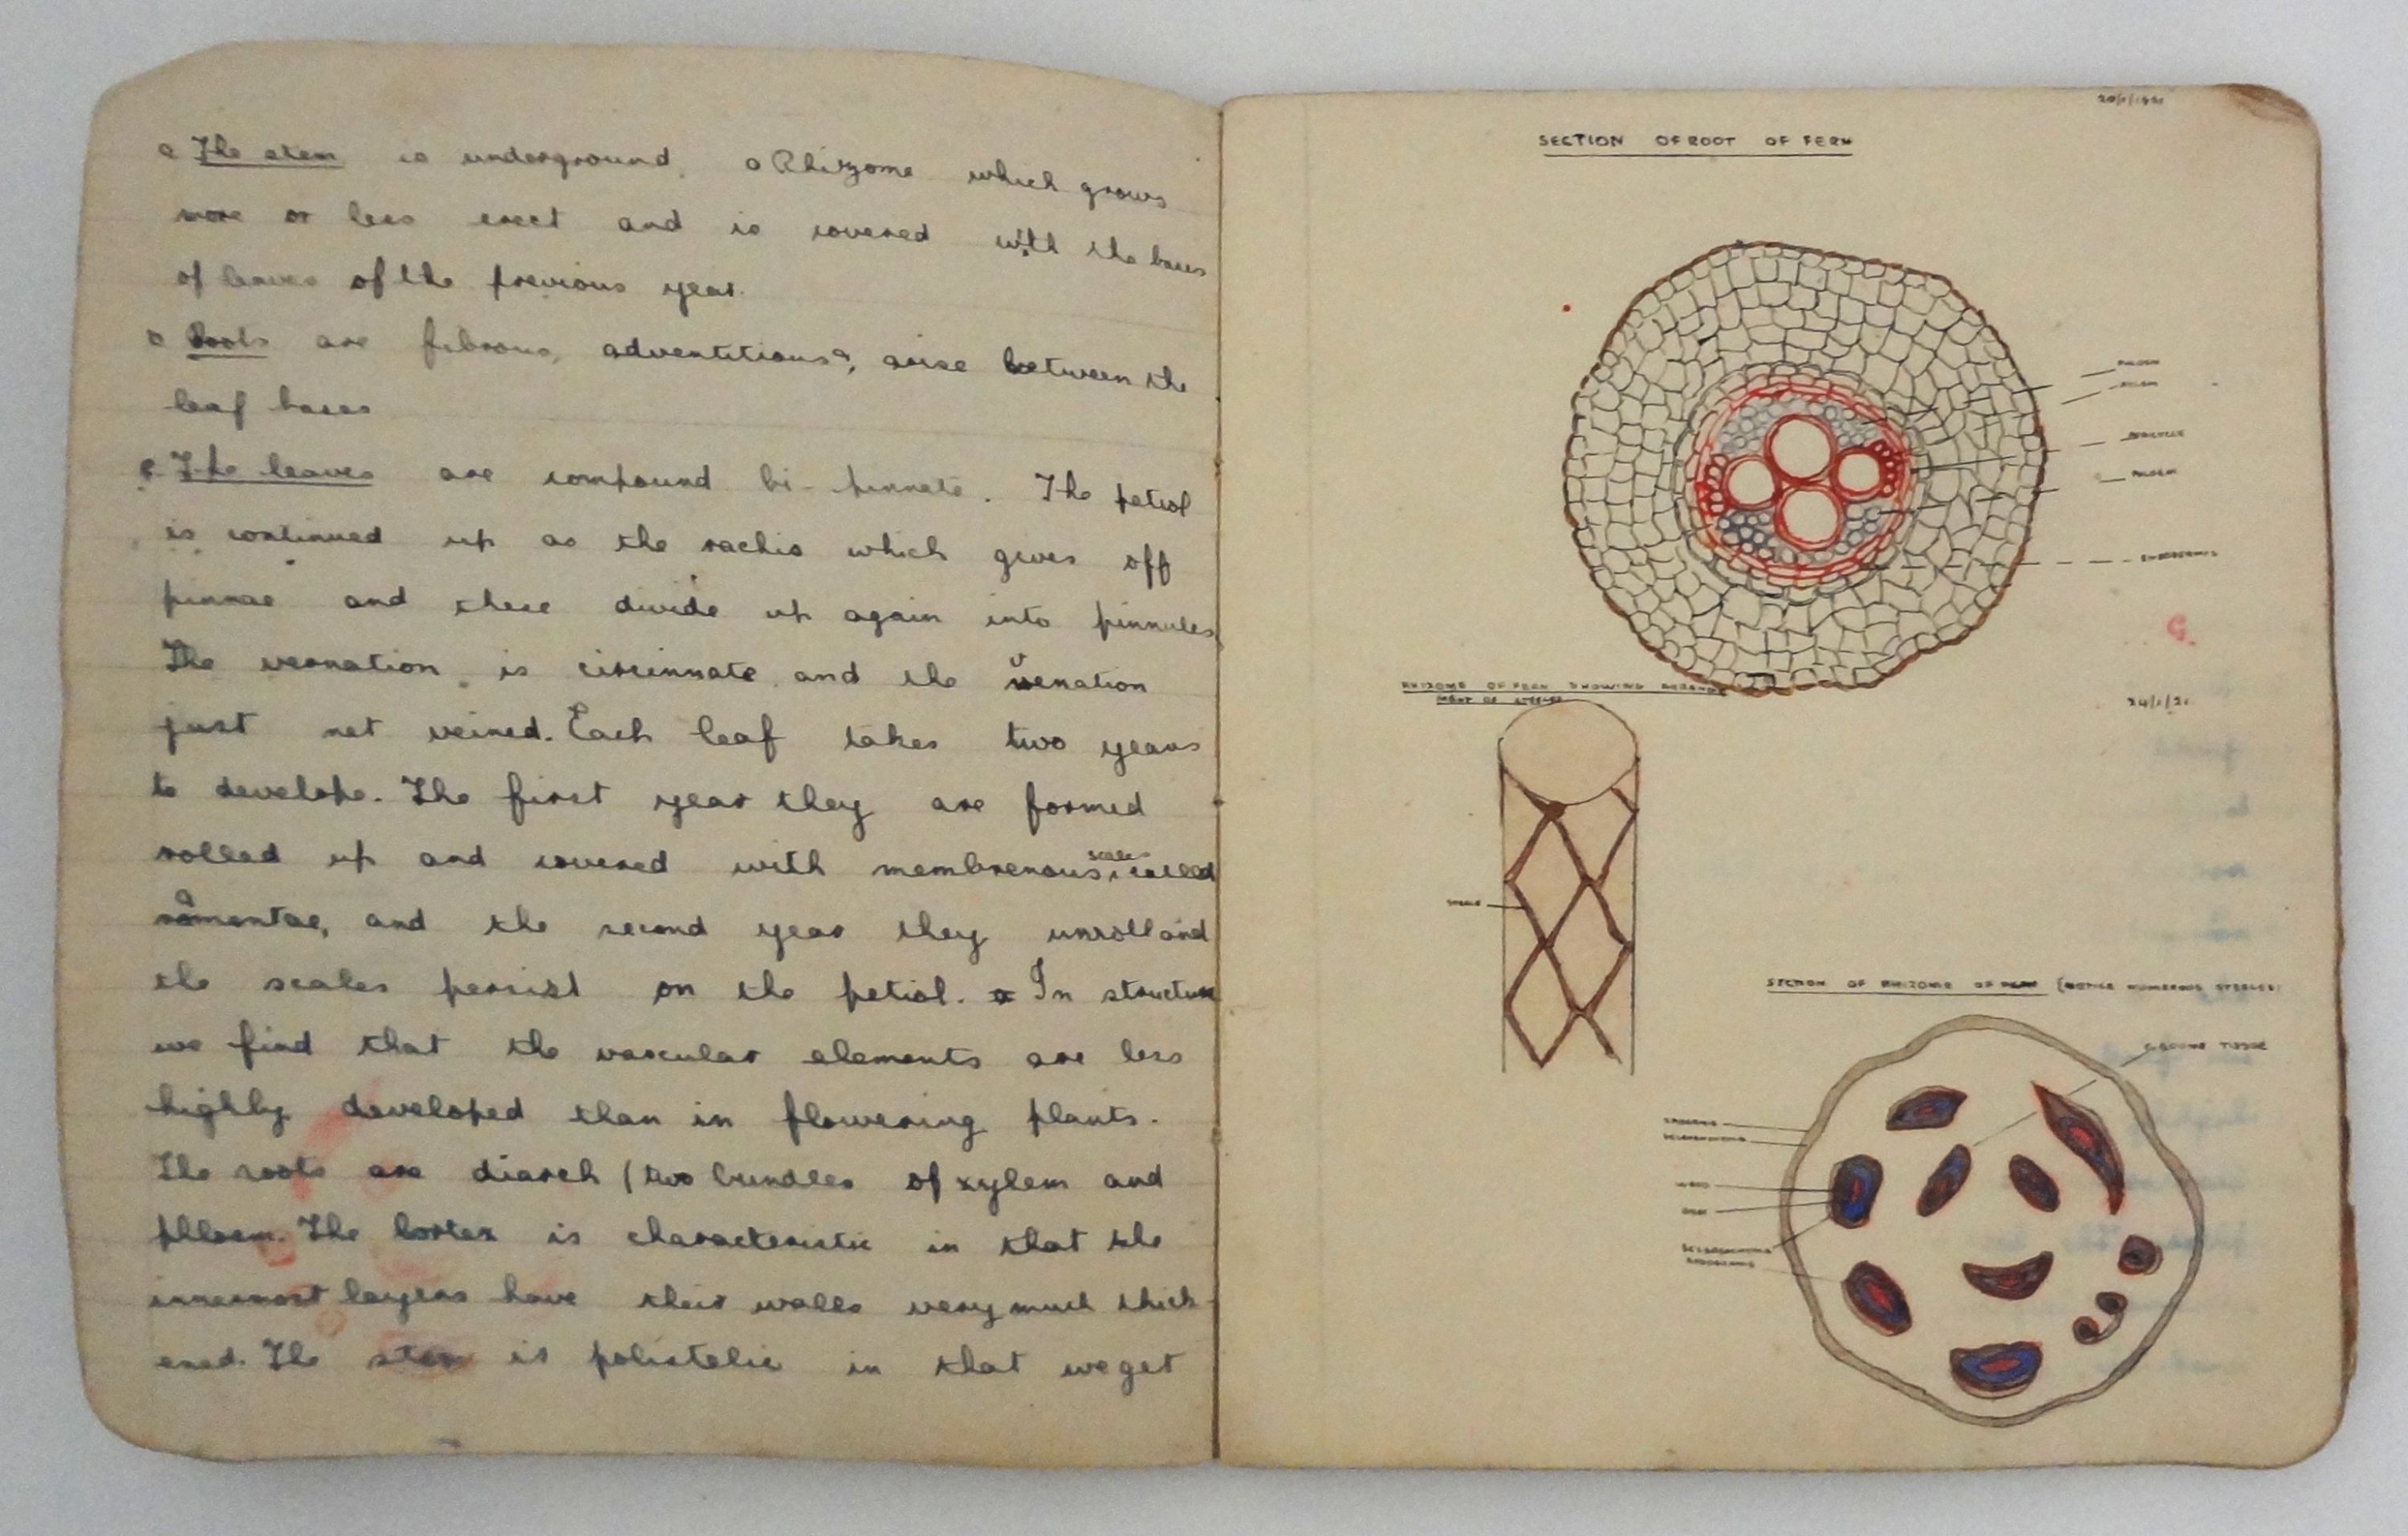 a The stem is underground, a Rhizome which grows
more or less erect and is covered with the bases
of leaves of the previous year.
b Roots are fibrous, adventitious, arise between the
leaf bases
c The leaves are compound bi-pinnate. The petiol
is continued up as the rachis which gives off
pinnae and these divide up again into pinnules
The vernation is circinnate and the venation
just net veined. Each leaf takes two years
to develope. The first year they are formed
rolled up and covered with membrenous scales called
ramentae, and the second year they unroll and
the scales persist on the petiol. In structure
we find that the vascular elements are less
highly developed than in flowering plants.
The roots are diarch (two bundles of xylem and
phloem. The cortex is characteristic in that the
innermost layers have their walls very much thick-
ened. The stem is polistelic in that we get
SECTION OF ROOT OF FERN
PHLOEM
XYLEM
PERICYCLE
PHLOEM
ENDODERMIS
G.
RHIZOME OF FERN SHOWING ARRANGE
MENT OF STEELES
24/1/21
STEELE
SECTION OF RHIZOME OF FERN (NOTICE NUMEROUS STEELES)
GROUND TISSUE
EPIDERMIS
SCLERENCHYMA
WOOD
BAST
SCLERENCHYMA
ENDODERMIS